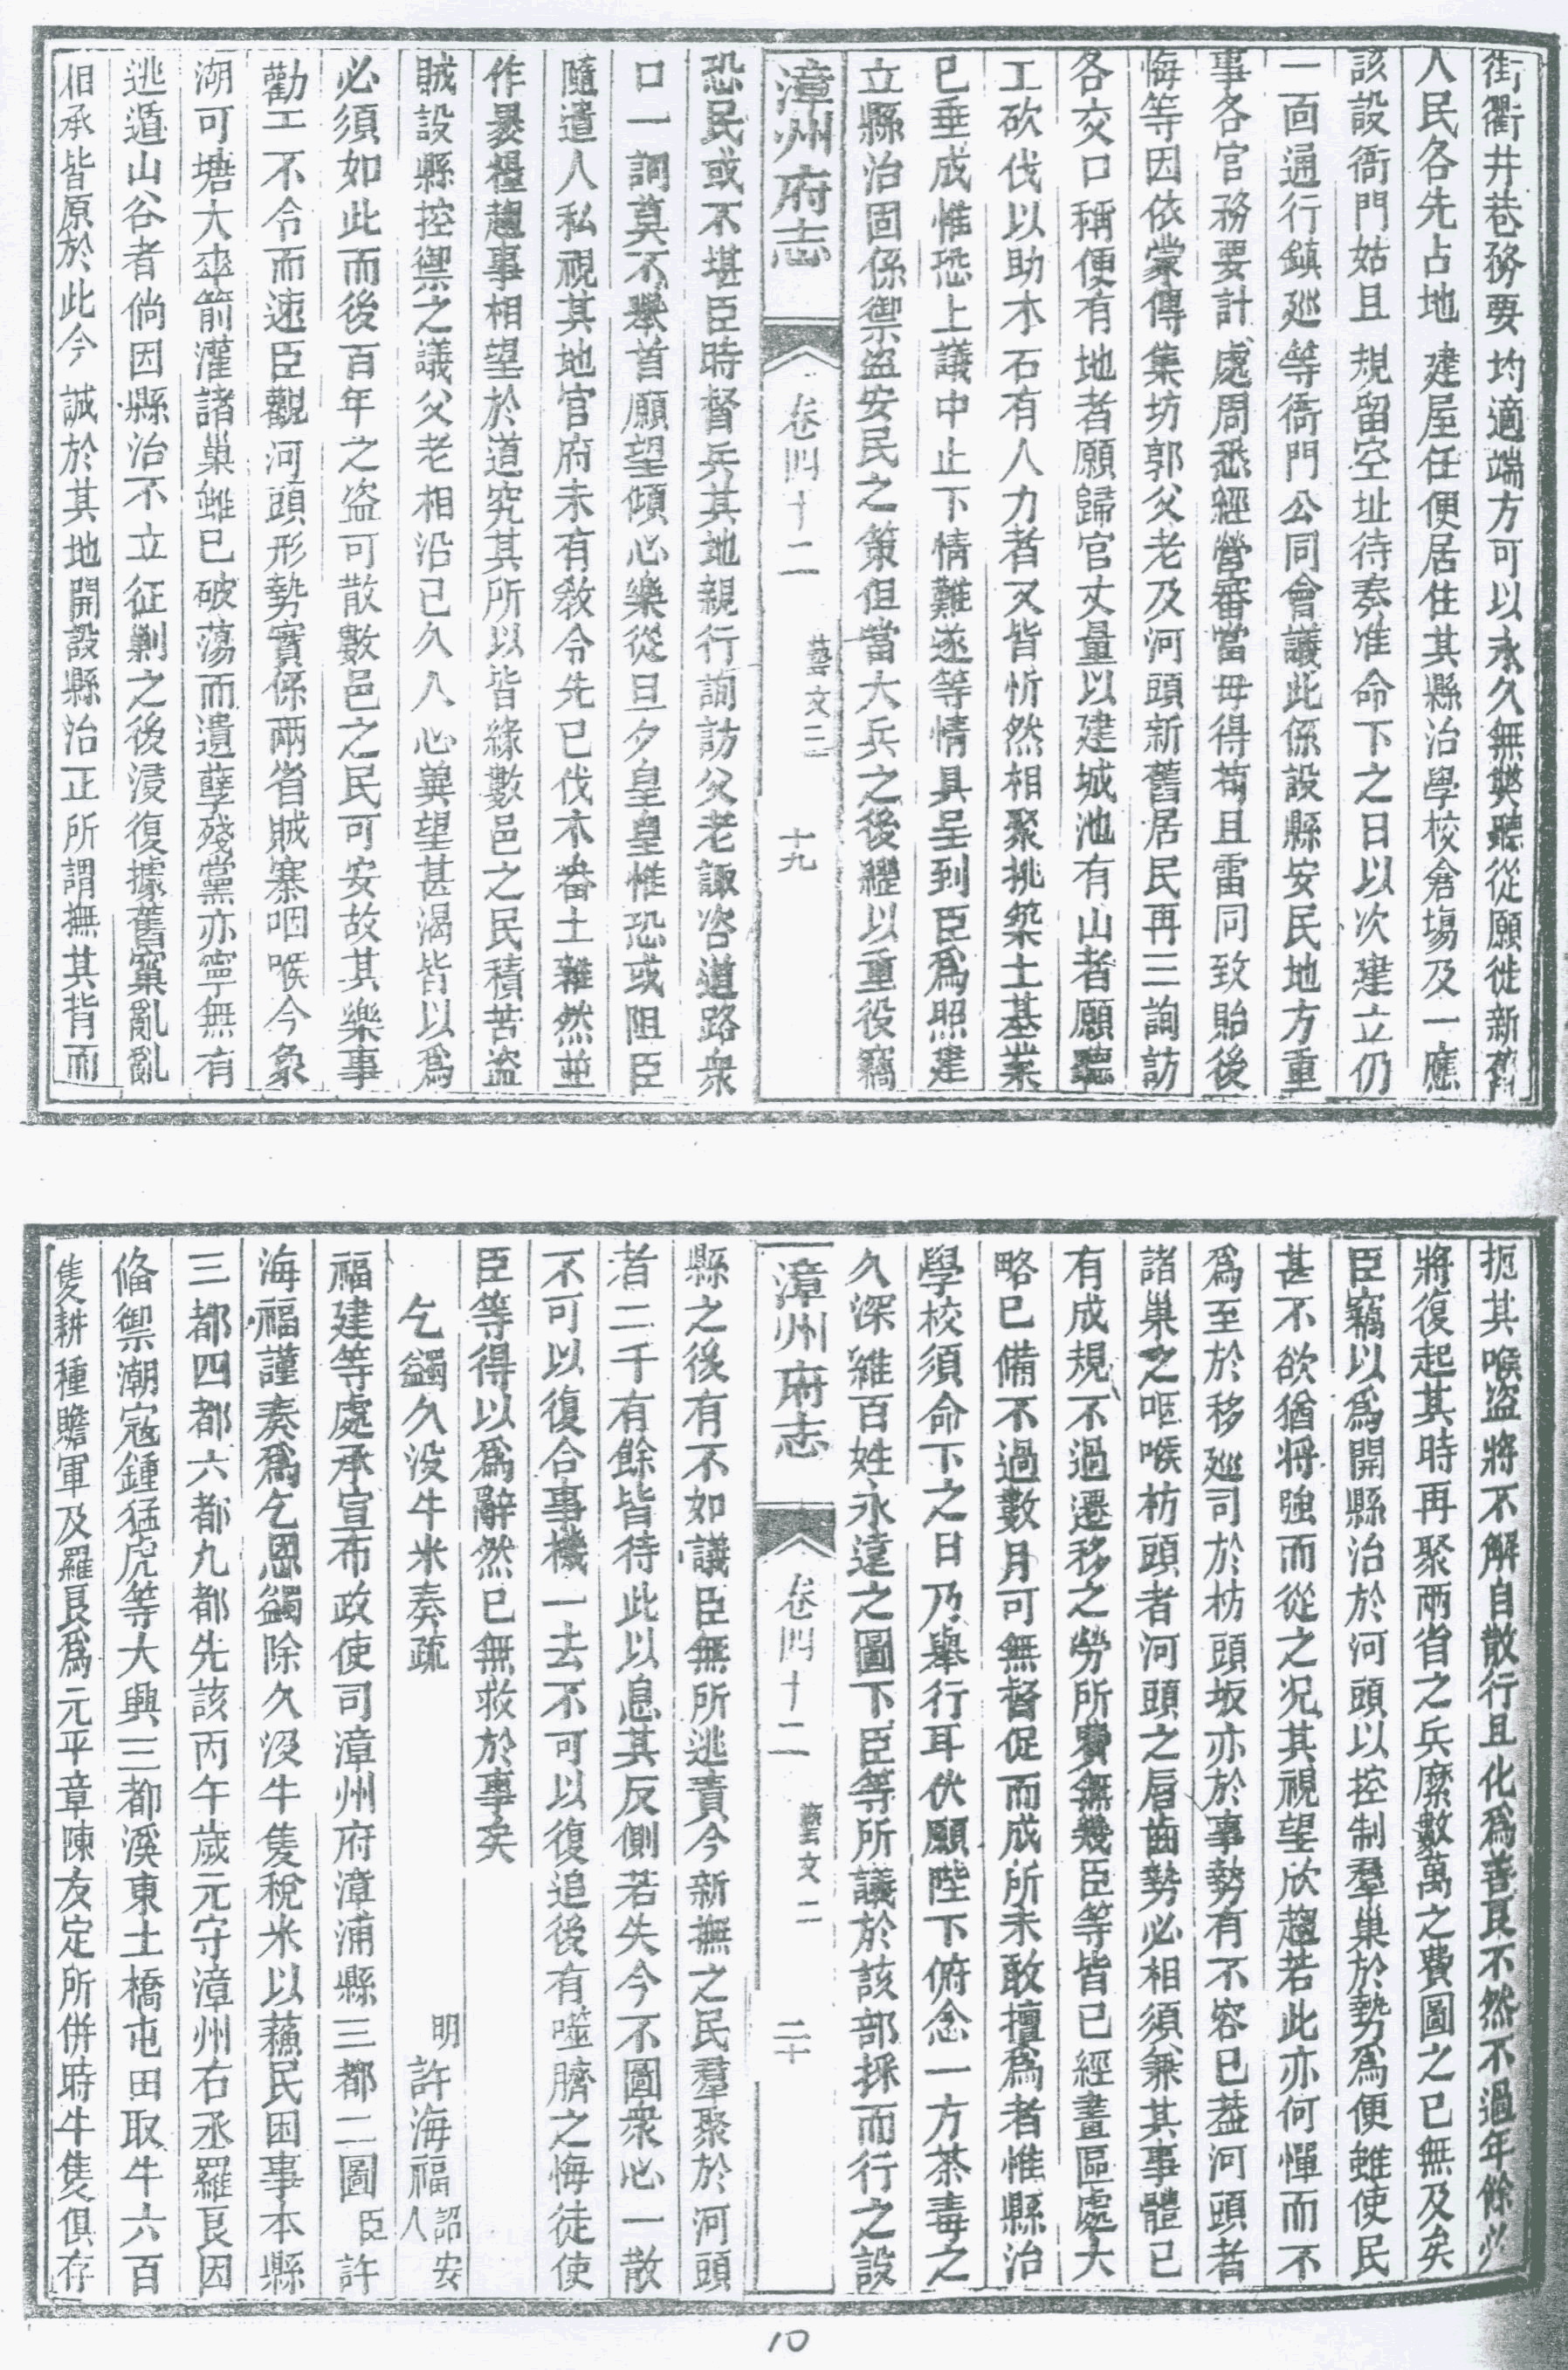 街衢井巷務要均適端方可以永久無獘聽從願徙新舊
人民各先占地建屋任便居住其縣治學校倉塲及一應
該設衙門姑且規留空址待奏准命下之日以次建立仍
一面通行鎮廵等衙門公同會議此係設縣安民地方重
事各官務要計處周悉經營審當毋得茍且雷同致貽後
悔等因依蒙傳集坊郭父老及河頭新舊居民再三詢訪
各交口稱便有地者願歸官丈量以建城池有山者願聽
工砍伐以助木石有人力者又皆忻然相聚挑築土基業
已垂成惟恐上議中止下情難遂等情具呈到臣爲照建
立縣治固係禦盜安民之策但當大兵之後繼以重役竊
漳州府志 卷四十二 藝文三 十九
恐民或不堪臣時督兵其地親行詢訪父老諏咨道路衆
口一詞莫不舉首願望傾心樂從旦夕皇皇惟恐或阻臣
隨遣人私視其地官府未有敎令先已伐木畚土雜然並
作裹糧趨事相望於道究其所以皆緣數邑之民積苦盜
賊設縣控禦之議父老相沿已久人心冀望甚渴皆以爲
必須如此而後百年之盜可散數邑之民可安故其樂事
勸工不令而速臣觀河頭形勢實係兩省賊寨咽喉今象
湖可塘大傘箭灌諸巢雖已破蕩而遺孽殘黨亦寧無有
逃遁山谷者倘因縣治不立征剿之後浸復據舊窠亂亂
相承皆原於此今誠於其地開設縣治正所謂撫其背而
扼其喉盜將不解自散行且化爲善良不然不過年餘必
將復起其時再聚兩省之兵糜數萬之費圖之已無及矣
臣竊以爲開縣治於河頭以控制羣巢於勢爲便雖使民
甚不欲猶將強而從之况其視望欣趨若此亦何憚而不
爲至於移廵司於枋頭坂亦於事勢有不容已葢河頭者
諸巢之咽喉枋頭者河頭之唇齒勢必相須兼其事體已
有成規不過遷移之勞所費無幾臣等皆已經畫區處大
略已備不過數月可無督促而成所未敢擅爲者惟縣治
學校須命下之日乃舉行耳伏願陛下俯念一方荼毒之
久深維百姓永遠之圖下臣等所議於該部採而行之設
漳州府志 卷四十二 藝文二 二十
縣之後有不如議臣無所逃責今新撫之民羣聚於河頭
者二千有餘皆待此以息其反側若失今不圖衆心一散
不可以復合事機一去不可以復追後有噬臍之悔徒使
臣等得以爲辭然已無救於事矣
乞蠲久没牛米奏疏 明許海福詔安人
福建等處承宣布政使司漳州府漳浦縣三都二圖臣許
海福謹奏爲乞恩蠲除久没牛隻稅米以蘓民困事本縣
三都四都六都九都先該丙午歲元守漳州右丞羅良因
偹禦潮寇鍾猛虎等大興三都溪東土橋屯田取牛六百
隻耕種贍軍及羅良爲元平章陳友定所併時牛隻俱存
10